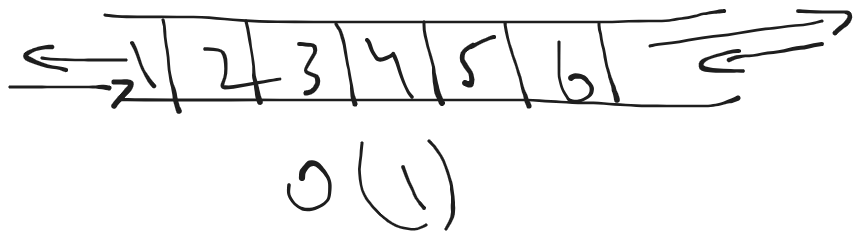 1 2 3 4 5 6
O(1)